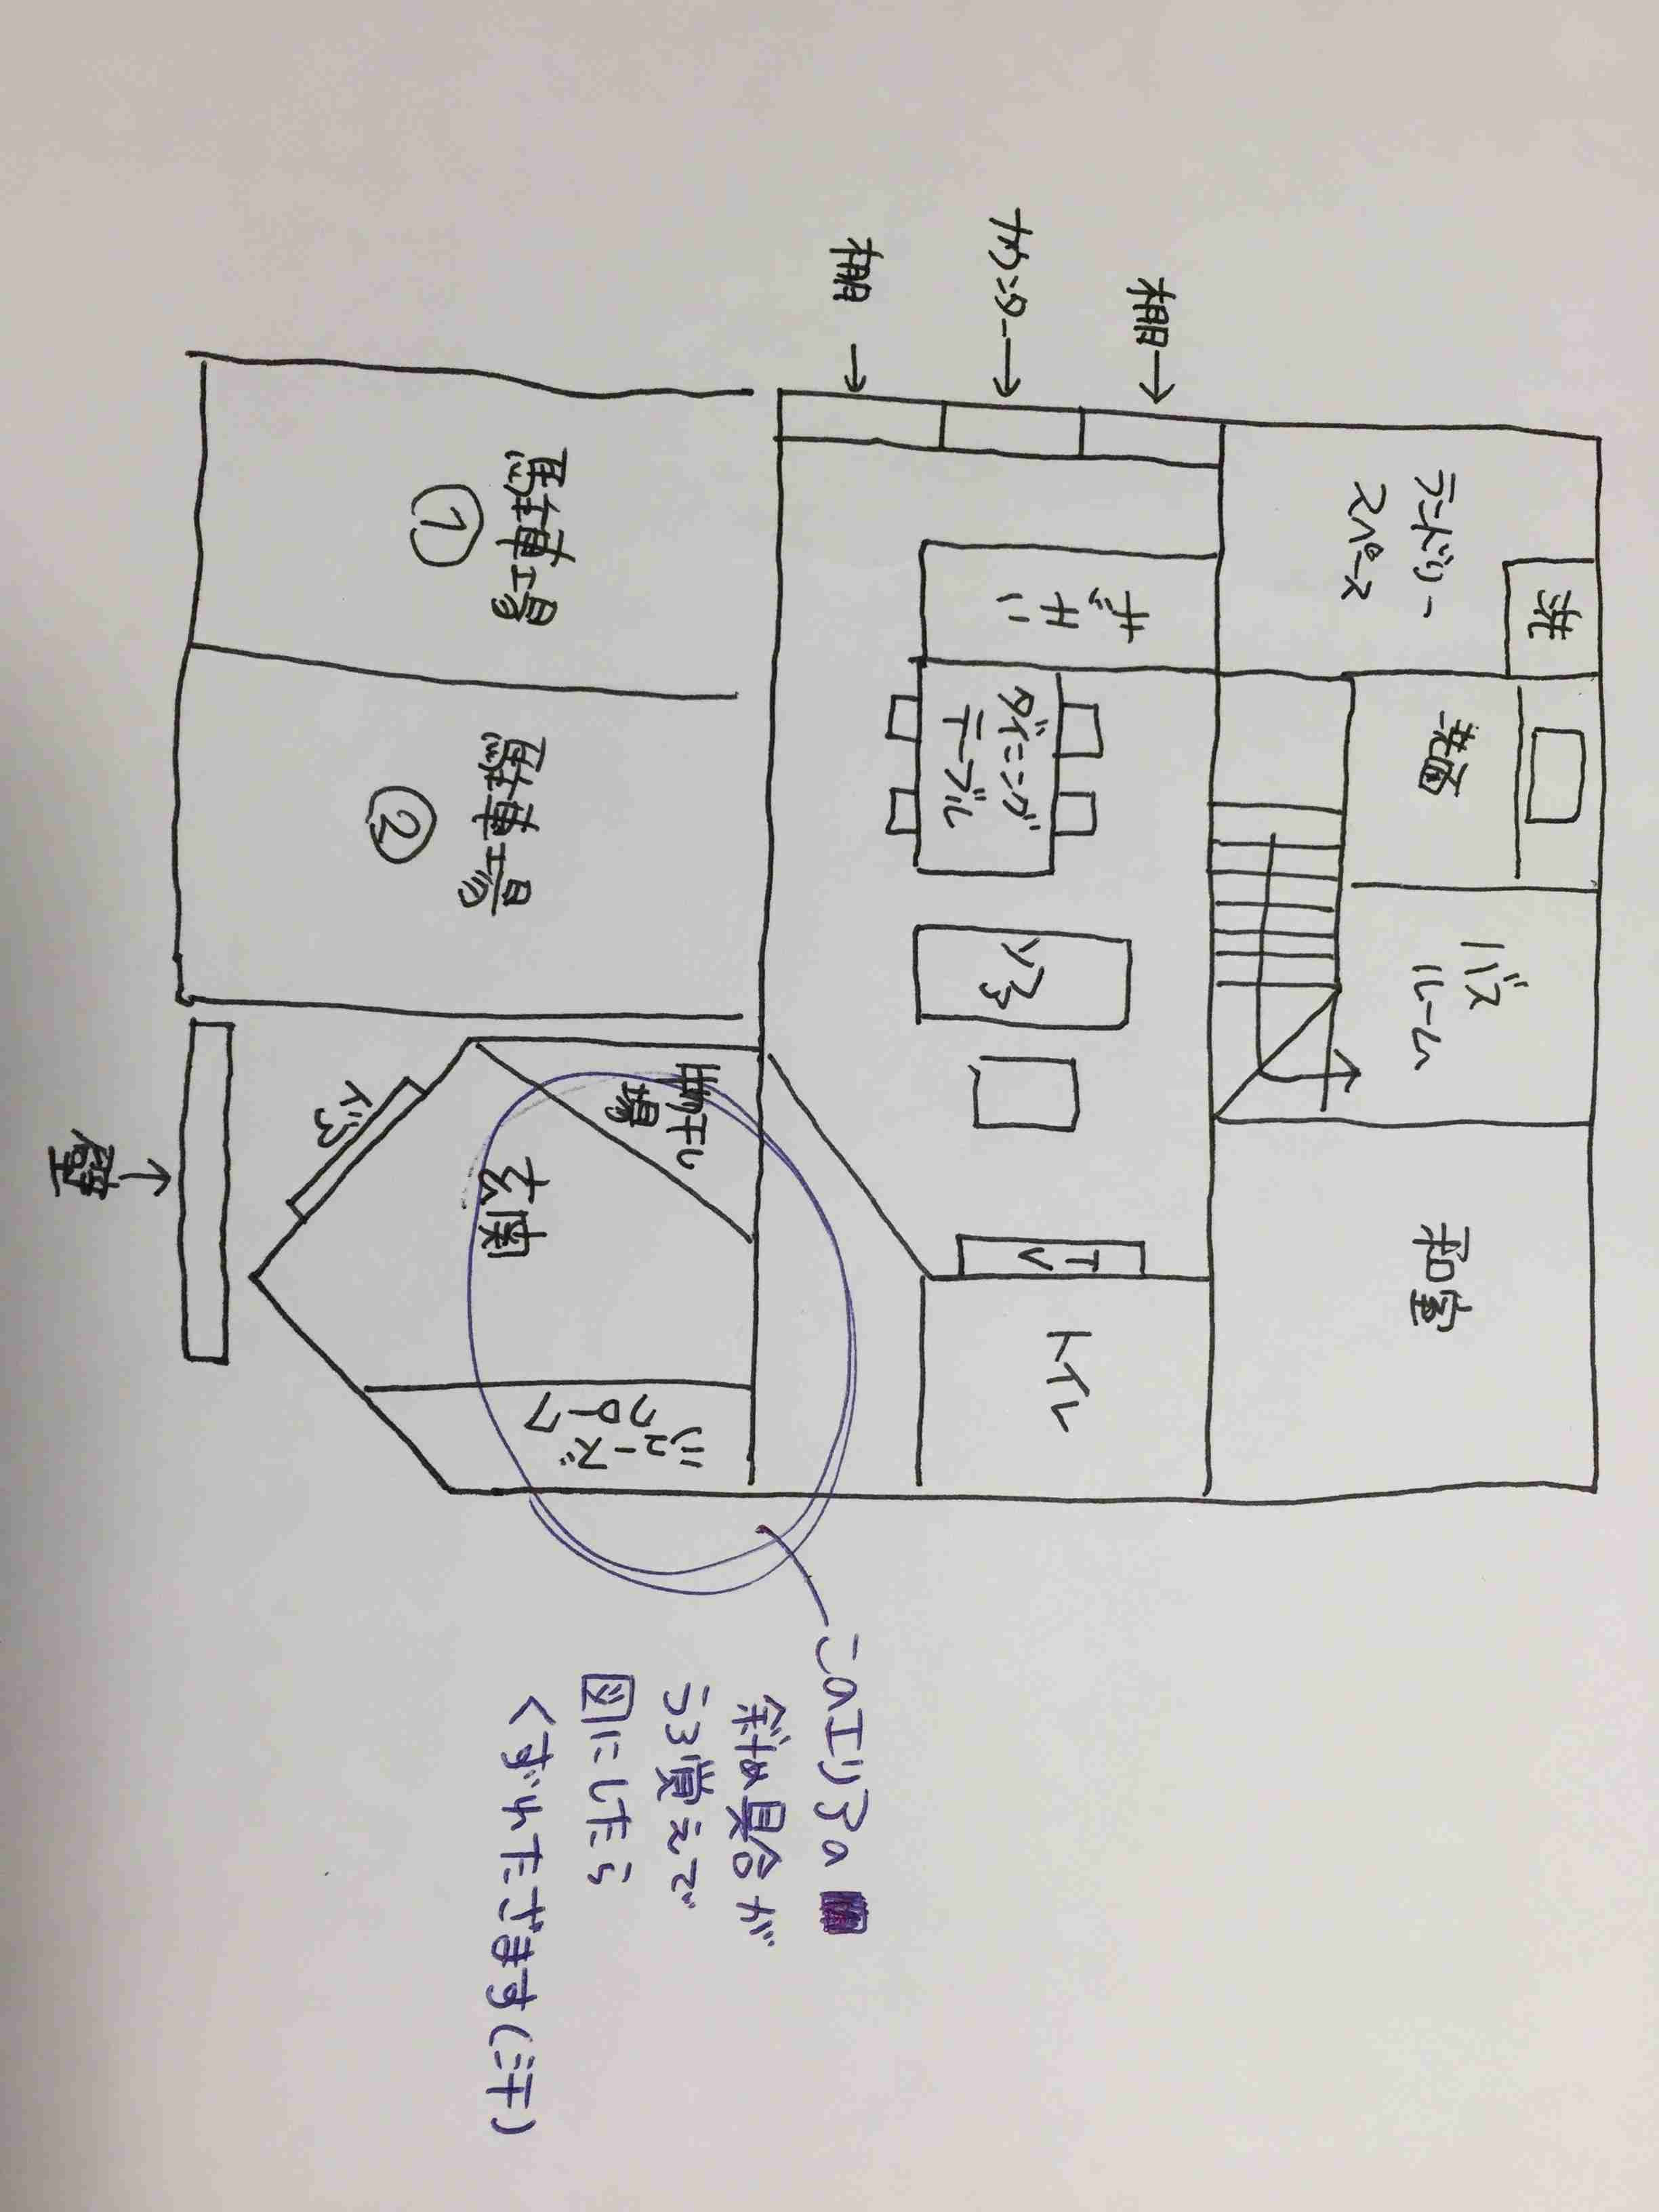 洗
ランドリー
スペース
洗面
バス
ルーム
和室
棚→
カウンター→
棚→
キッチン
ダイニング
テーブル
ソファ
TV
トイレ
駐車場
①
駐車場
②
物干し
場
玄関
ドア
シューズ
クローク
壁→
このエリアの
斜め具合が
うろ覚えで
図にしたら
くずれたざます(汗)